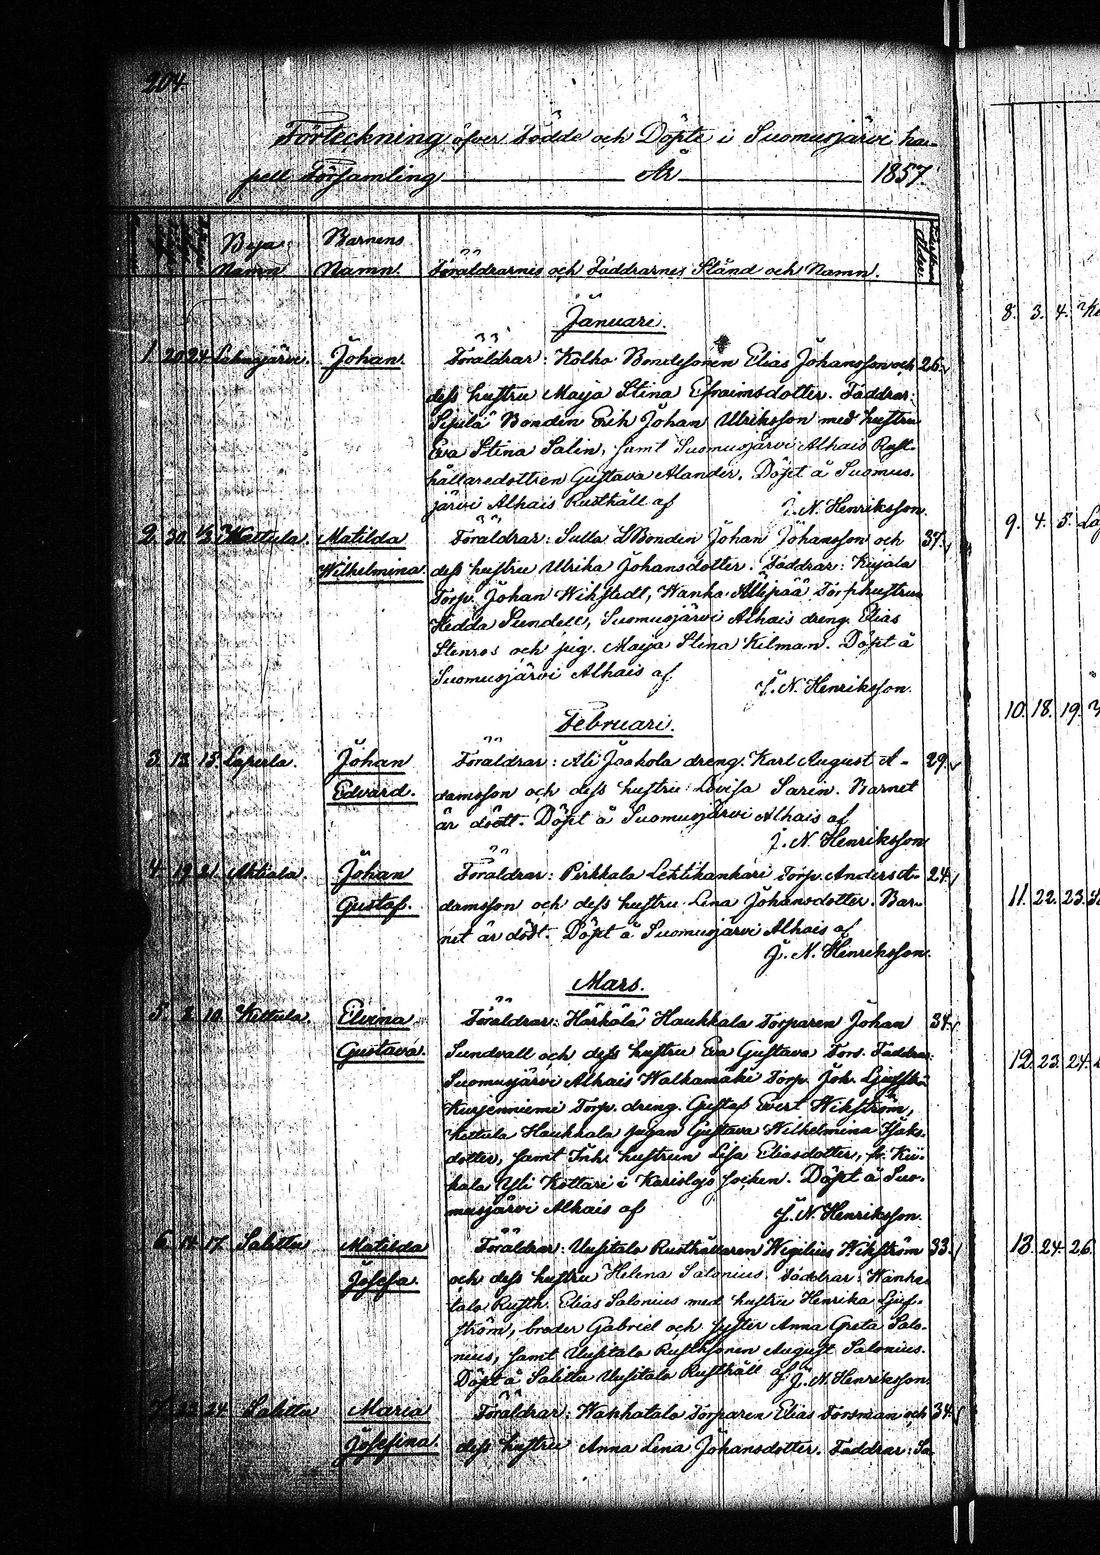 204.
Förteckning öfver Födde och Döpte i Suomusjärvi ka-
pell Församling År 1857.
Bya Namn
Barnens Namn.
Föräldrarnes och Faddrarnes Stånd och Namn.
Januari.
1. 20 24 Lahnajärvi. Johan. Föräldrar: Kolho Bondesonen Elias Johansson och 26.
dess hustru Maija Stina Efraimsdotter. Faddrar:
Sipilä Bonden Erik Johan Ulriksson med hustru
Eva Stina Salin, samt Suomusjärvi Alhais Rust-
hållaredottren Gustava Alander. Döpt å Suomus-
järvi Alhais Rusthåll af J. N. Henriksson.
2. 30. 1/3 Kettula. Matilda Föräldrar: Bonden Johan Johansson och 37.
Wilhelmina. dess hustru Ulrika Johansdotter. Faddrar: Kujala
Torp. Johan Wikstedt, Wanha Torphustrun
Hedda Sundell, Suomusjärvi Alhais dreng. Elias
Stenros och pig. Maija Stina Kilman. Döpt å
Suomusjärvi Alhais af J. N. Henriksson.
Februari.
3. 13. 15. Laperla. Johan Föräldrar: Ali Jaakola dreng. Karl August A- 29.
Edvard. damsson och dess hustru Lovisa Sarin. Barnet
är dödt. Döpt å Suomusjärvi Alhais af
J. N. Henriksson
4. 19. 21. Ahtiala. Johan Föräldrar: Pirkkala Lehtikankari Torp. Anders A- 24.
Gustaf. damsson och dess hustru Lena Johansdotter. Bar-
net är dödt. Döpt å Suomusjärvi Alhais af
J. N. Henriksson.
Mars.
5. 2. 10. Kettula. Elvina Föräldrar: Härkälä Haukkala Torparen Johan 34.
Gustava. Sundvall och dess hustru Eva Gustava Fors. Faddrar:
Suomusjärvi Alhais Walkamäki Torp. Joh.
Kurjenniemi Torp. dreng. Gustaf Evert Wikström,
Kettula Haukkala pigan Gustava Wilhelmina Isaks-
dotter, samt Inh. hustrun Lisa Eliasdotter, fr. Kir-
kala Yli Kottari i Karislojo socken. Döpt å Suo-
musjärvi Alhais af J. N. Henriksson.
6. 14. 17. Salittu Matilda Föräldrar: Uusitalo Rusthållaren Wigilius Wikström 33.
Josefa. och dess hustru Helena Salonius. Faddrar: Wanha-
talo Rusth. Elias Salonius med hustru Henrika Ljus-
ström, broder Gabriel och syster Anna Greta Salo-
nius, samt Uusitalo Rusth.sonen August Salonius.
Döpt å Salittu Uusitalo Rusthåll af J. N. Henriksson.
7. 23. 24. Salittu Maria Föräldrar: Wanhatalo Torparen Elias Forsman och 34.
Josefina. dess hustru Anna Lena Johansdotter. Faddrar: Sa-
8. 3. 4.
9. 4. 5.
10. 18. 19.
11. 22. 23.
12. 23. 24.
13. 24. 26.